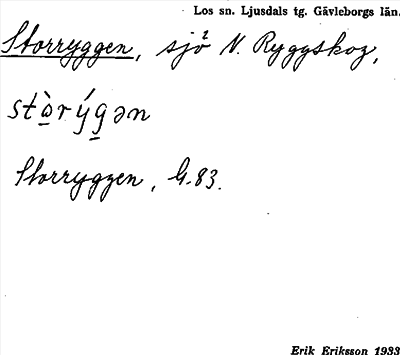 Los sn. Ljusdals tg. Gävleborgs län.
Storryggen, sjö² V. Ryggskog,
stὰrýgən
Storryggen, G.83.
Erik Eriksson 1933